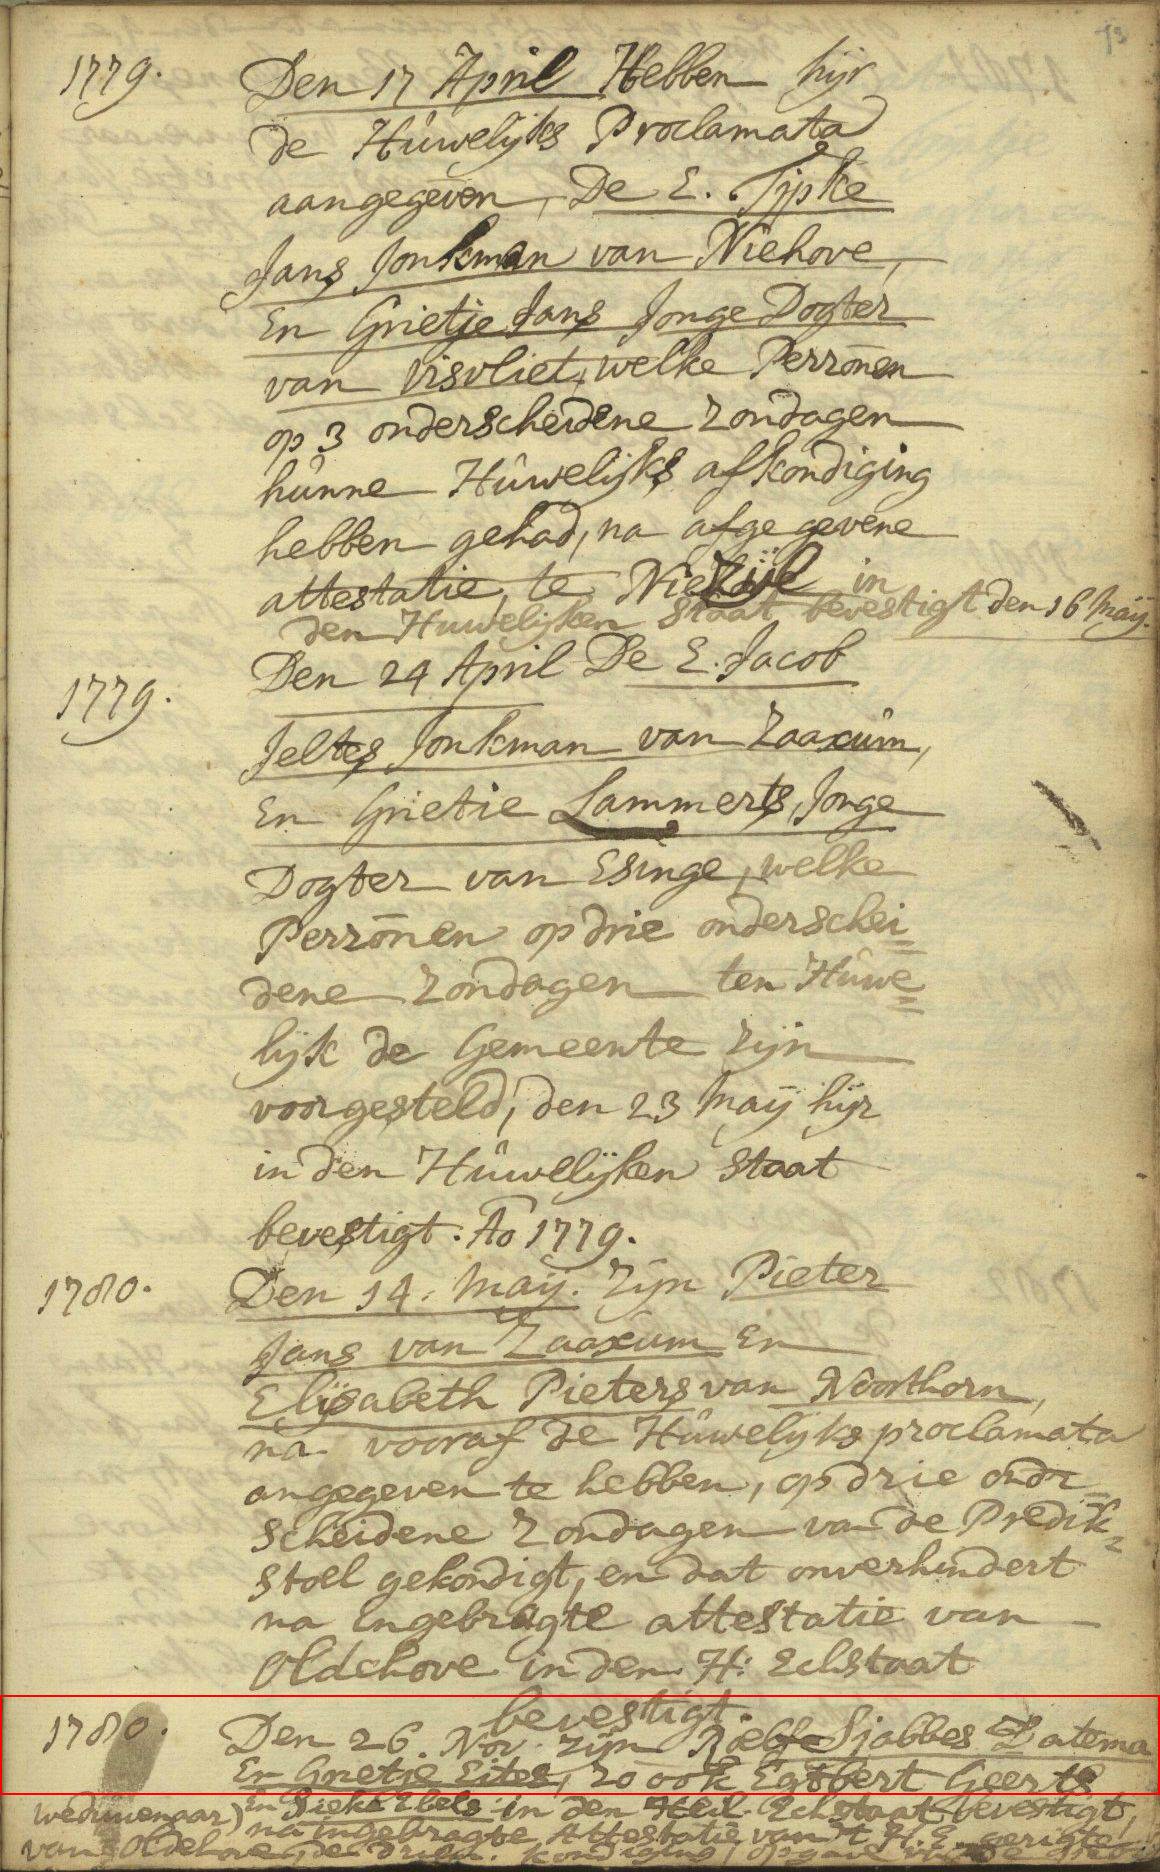 73
1779. Den 17 April Hebben hijr
de Hûwelijks Proclamata
aangegeven, De E. Tjpke
Jans Jonkman van Niehove,
En Grietje Jans Jonge Dogter
van Visvliet, welke Perzonen
op 3 onderscheidene Zondagen
hûnne Hûwelijks afkondiging
hebben gehad, na afgegevene
attestatie, te Niezijl in
den Huwelijken Staat bevestigt den 16 Maij.
1779. Den 24 April De E. Jacob
Jeltes Jonkman van Zaaxûm,
En Grietie Lammerts, Jonge
Dogter van Esinge, welke
Perzonen op drie onderschei=
dene Zondagen ten Hûwe=
lijk de Gemeente zijn
voorgesteld, den 23 Maij hijr
in den Hûwelijken Staat
bevestigt. Ao 1779.
1780. Den 14. Maij. Zijn Pieter
Jans van Zaaxum En
Elijsabeth Pieters van Noorthorn,
na vooraf de Hûwelijks proclamata
angegeven te hebben, op drie ondr=
scheidene Zondagen van de Predik=
stoel gekondigt, en dat onverhindert
na ingebragte attestatie van
Oldehove in den H: Echstaat
bevestigt.
1780. Den 26. Nov. zijn Roelf Sjabbes Zatema
En Grietje Eites, zo ook Egbbert Geerts
weduwenaar) En Sieke Ebels in den Heil. Echstaat bevestigt,
na ingebragte Attestatie van 't H. E. gerigte
van Oldehove, de kondiging,